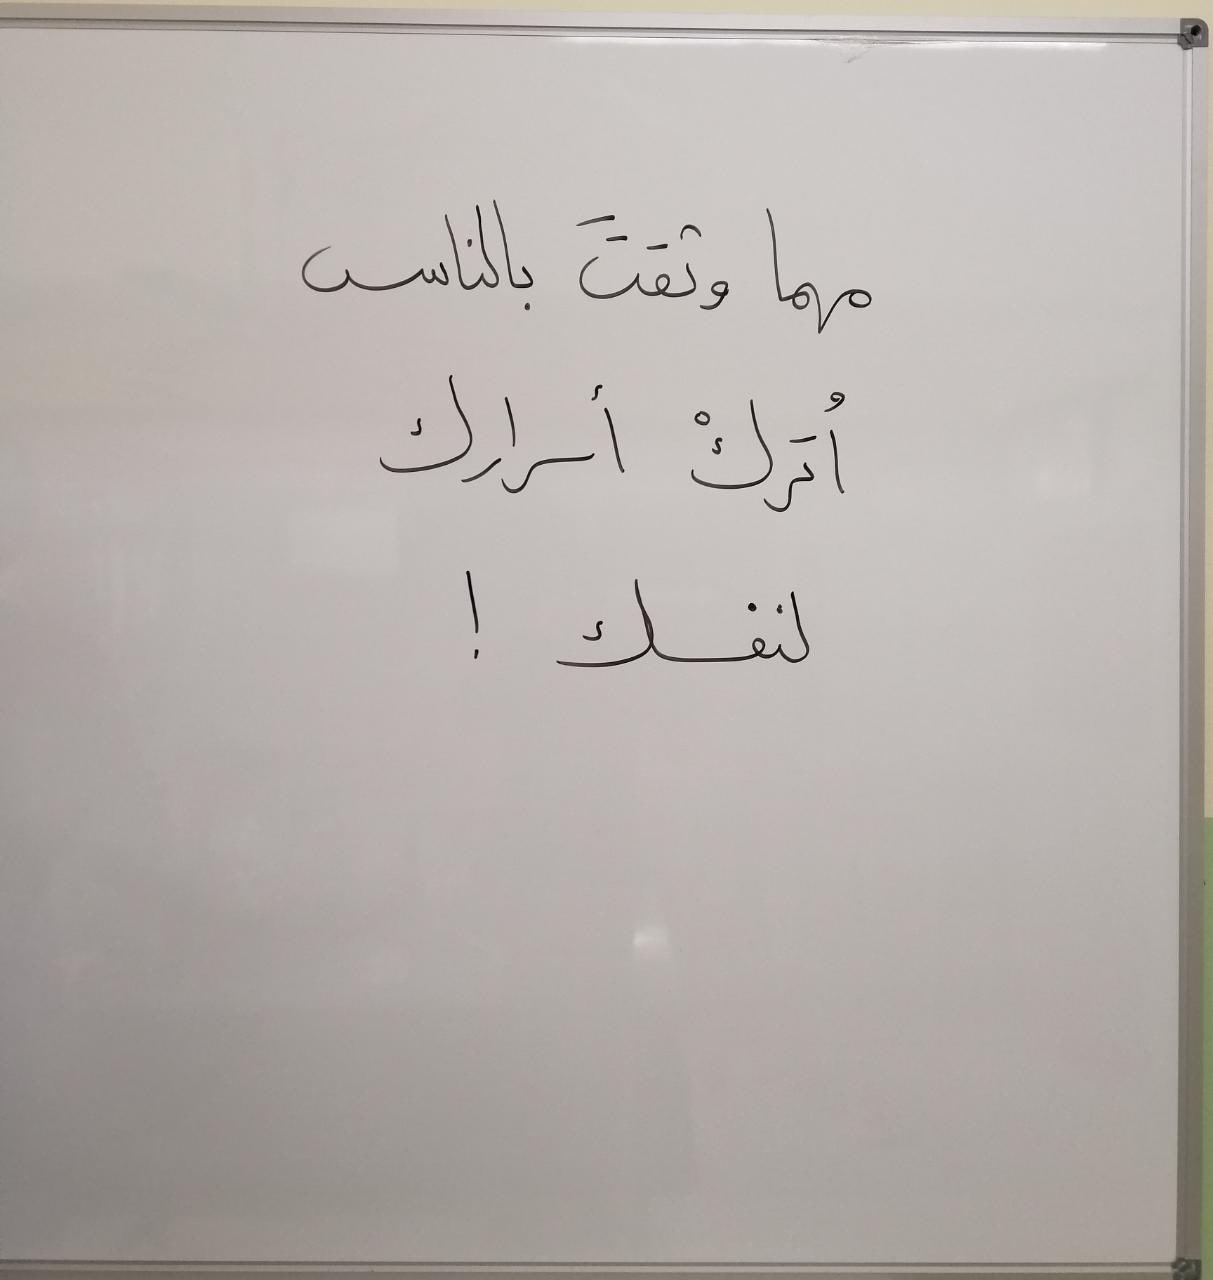 مهما وثقتَ بالناس
أُتركْ أسرارك
لنفسك !